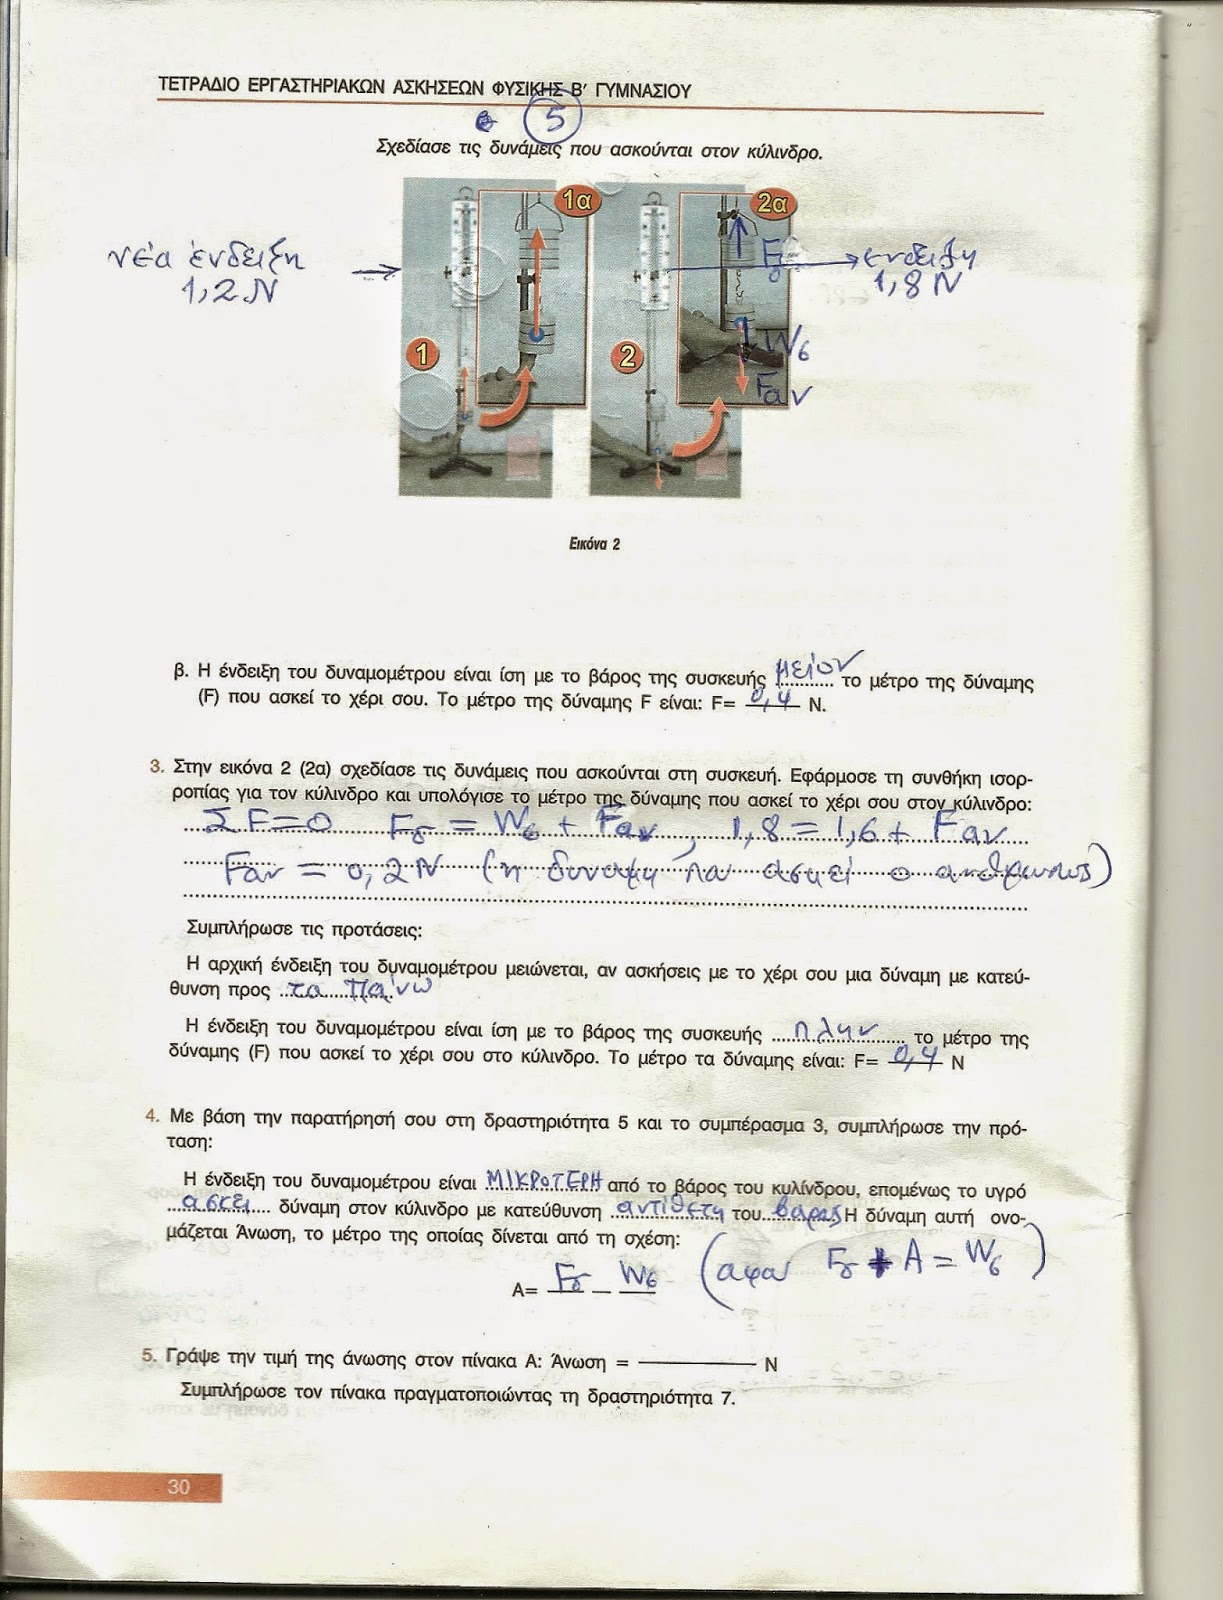 ΤΕΤΡΑΔΙΟ ΕΡΓΑΣΤΗΡΙΑΚΩΝ ΑΣΚΗΣΕΩΝ ΦΥΣΙΚΗΣ Β' ΓΥΜΝΑΣΙΟΥ
5
Σχεδίασε τις δυνάμεις που ασκούνται στον κύλινδρο.
1α
2α
νέα ένδειξη
1,2 N
ενδειξη
1,8 N
Fδ
1
2
Wσ
Fαν
Εικόνα 2
β. Η ένδειξη του δυναμομέτρου είναι ίση με το βάρος της συσκευής μείον το μέτρο της δύναμης
(F) που ασκεί το χέρι σου. Το μέτρο της δύναμης F είναι: F= 0,4 N.
3. Στην εικόνα 2 (2α) σχεδίασε τις δυνάμεις που ασκούνται στη συσκευή. Εφάρμοσε τη συνθήκη ισορ-
ροπίας για τον κύλινδρο και υπολόγισε το μέτρο της δύναμης που ασκεί το χέρι σου στον κύλινδρο:
ΣF=0 Fδ = Wσ + Fαν, 1,8 = 1,6 + Fαν
Fαν = 0,2 N (η δυναμη που ασκεί ο ανθρωπος)
Συμπλήρωσε τις προτάσεις:
Η αρχική ένδειξη του δυναμομέτρου μειώνεται, αν ασκήσεις με το χέρι σου μια δύναμη με κατεύ-
θυνση προς τα πάνω
Η ένδειξη του δυναμομέτρου είναι ίση με το βάρος της συσκευής πλην το μέτρο της
δύναμης (F) που ασκεί το χέρι σου στο κύλινδρο. Το μέτρο τα δύναμης είναι: F= 0,4 N
4. Με βάση την παρατήρησή σου στη δραστηριότητα 5 και το συμπέρασμα 3, συμπλήρωσε την πρό-
ταση:
Η ένδειξη του δυναμομέτρου είναι ΜΙΚΡΟΤΕΡΗ από το βάρος του κυλίνδρου, επομένως το υγρό
ασκεί δύναμη στον κύλινδρο με κατεύθυνση αντίθετη του βάρους Η δύναμη αυτή ονο-
μάζεται Άνωση, το μέτρο της οποίας δίνεται από τη σχέση:
A= Fδ – Wσ (αφου Fδ + A = Wσ)
5. Γράψε την τιμή της άνωσης στον πίνακα Α: Άνωση = N
Συμπλήρωσε τον πίνακα πραγματοποιώντας τη δραστηριότητα 7.
30